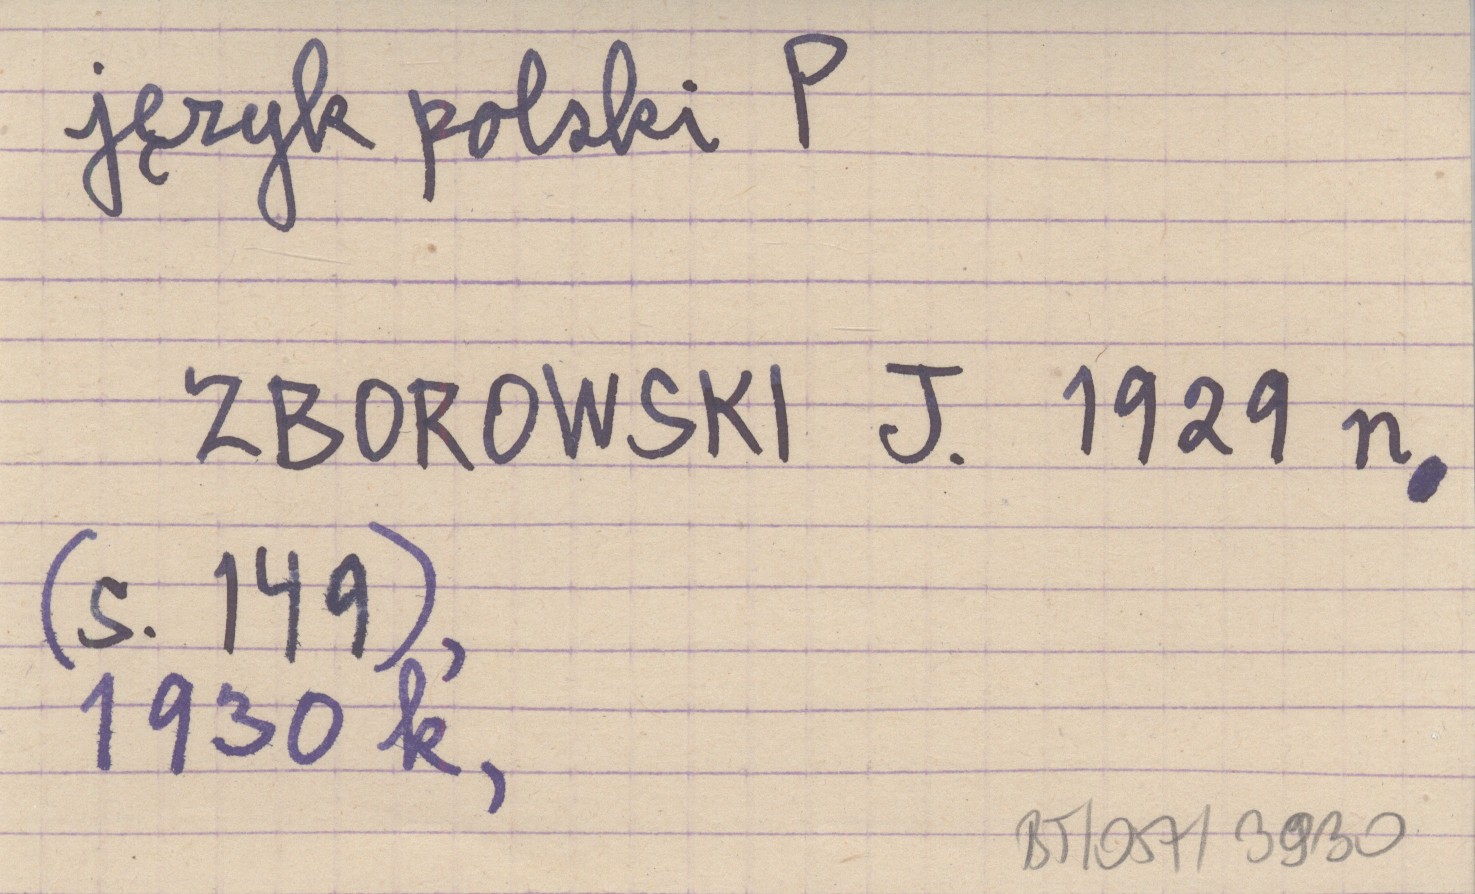 język polski P
ZBOROWSKI J. 1929 n.
(s. 149),
1930 k,
BT/057/3930